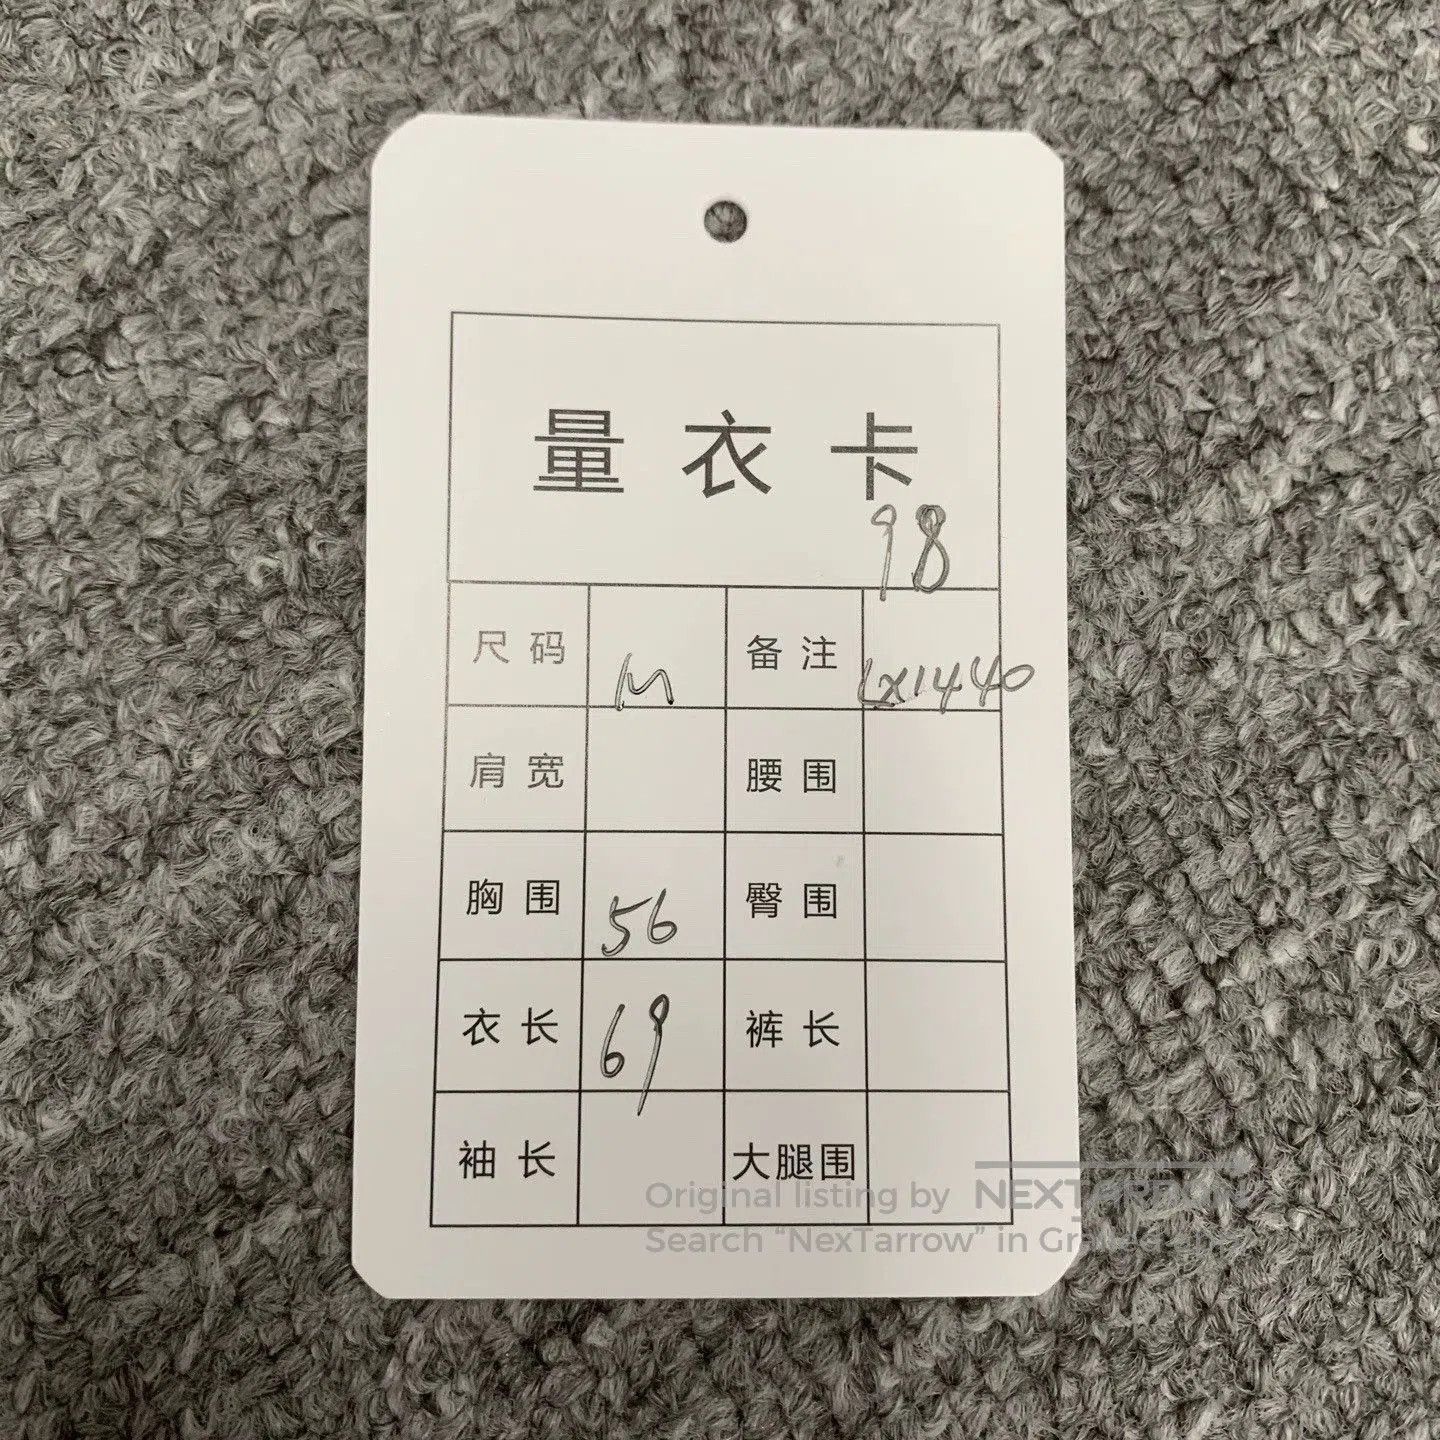 量衣卡
98
尺码 M 备注 LX1440
肩宽 腰围
胸围 56 臀围
衣长 69 裤长
袖长 大腿围
Original listing by NEXTARROW
Search “NexTarrow” in Grailed app